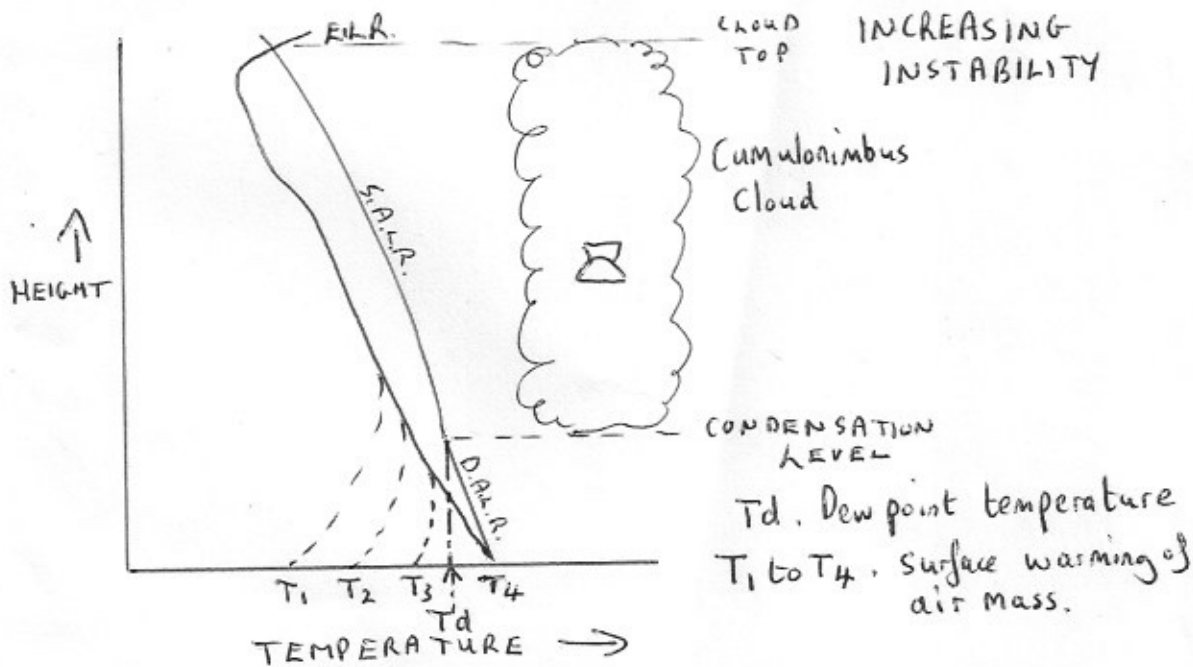 E.L.R.
CLOUD
TOP
INCREASING
INSTABILITY
Cumulonimbus
Cloud
S.A.L.R.
HEIGHT
CONDENSATION
LEVEL
D.A.L.R.
Td. Dew point temperature
T1 to T4. Surface warming of
air mass.
T1 T2 T3 T4
Td
TEMPERATURE